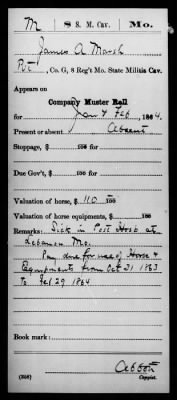 M | 8 S. M. Cav. | Mo.
James A Marsh
Pvt, Co. G, 8 Reg't Mo. State Militia Cav.
Appears on
Company Muster Roll
for Jan & Feb, 1864.
Present or absent Absent
Stoppage, $ 100 for
Due Gov't, $ 100 for
Valuation of horse, $ 110 100
Valuation of horse equipments, $ 100
Remarks: Sick in Post Hosp at
Lebanon Mo.
Pay due for use of Horse &
Equipments from Oct 31 1863
to Feb 29 1864
Book mark:
(358)
Copyist.